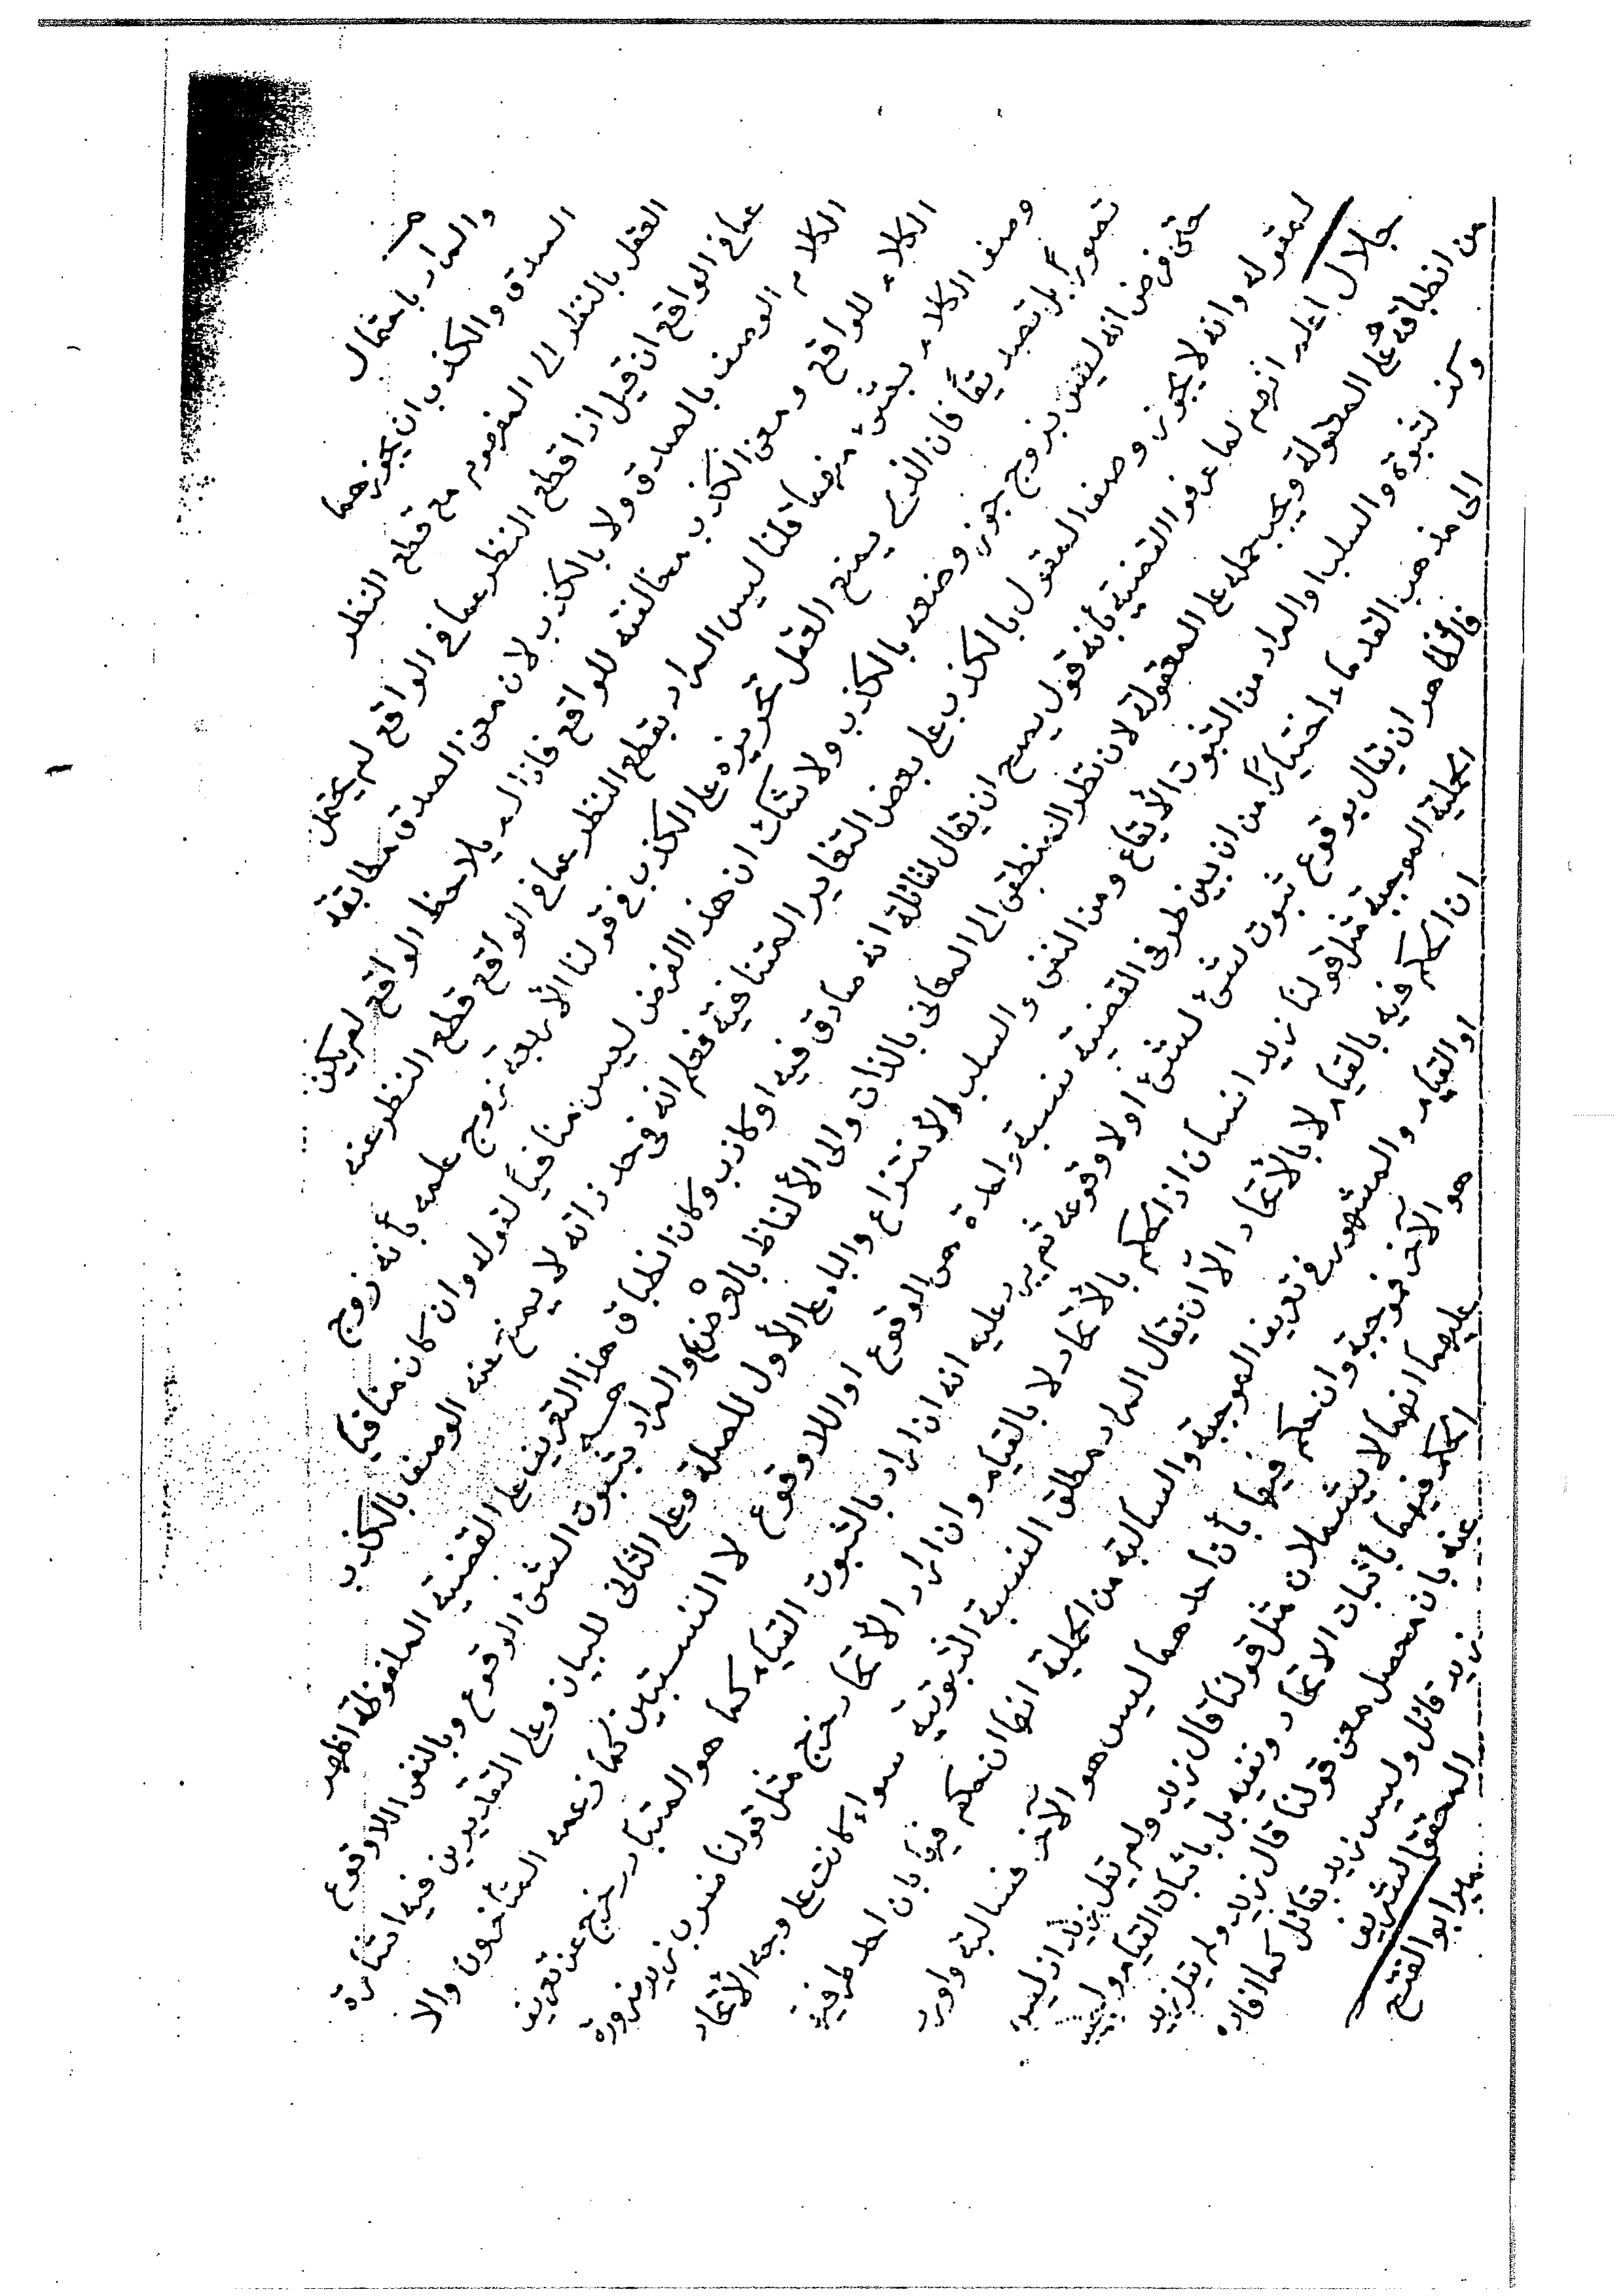 والمراد باحتمال
الصدق والكذب ان يجوزهما
العقل بالنظر الى المفهوم مع قطع النظر
عما في الواقع ان قيل اذا قطع النظر عما في الواقع لم يحتمل
الكلام الوصف بالصدق ولا بالكذب لان معنى الصدق مطابقة
الكلام للواقع ومعنى الكذب مخالفته للواقع فاذا لم يلاحظ الواقع لم يكن
وصف الكلام بشئ منهما قلنا ليس المراد بقطع النظر عما في الواقع قطع النظر عنه
تصورًا بل تصديقًا فان الذي يمنع العقل تجويزه على الكذب في قولنا الأربعة زوج علمه بأنه زوج
حتى فرض انه ليس بزوج جوز وضعه بالكاذب ولا شك ان هذا الفرض ليس منافيًا لقوله وان كان منافيا
لمقوله وانه لا يجوز وصف المقول بالكذب على بعض التقادير المتنافية فعلم انه في حد ذاته لا يمنع عنه الوصف بالكذب
جلال انهم لما عرفوا القضية بأنه قول يصح ان يقال لقائله انه صادق فيه او كاذب وكان انطباق هذا التعريف على القضية الملفوظة اظهر
من انطباقه على المعقولة ويجب حمله على المعقولة لان نظر المنطقى الى المعانى بالذات والى الألفاظ بالعرض والمراد بثبوت الشئ الوقوع وبالنفى اللاوقوع
والسلب او المراد من الثبوت الأيقاع ومن النفى والسلب الأنتزاع والباء على الأول للصلة وعلى الثانى للبيان وعلى التقديرين فيه اشارة
الى مذهب القدماء اختيارًا من ان بين طرفى القضية نسبة واحدة هى الوقوع او اللاوقوع لا النسبتين كما زعمه المتأخرون والا
فالظاهر ان يقال بوقوع ثبوت لشئ لشئ اولا وقوعه ثم يرد عليه انه ان اراد بالثبوت القيام كما هو المتبادر خرج عن تعريف
الحملية الموجبة مثل قولنا زيد انسان اذ الحكم بالأتحاد لا بالقيام وان اراد الأتحاد خرج مثل قولنا ضرب زيد ضرورة
ان الحكم فيه بالقيام لا بالأتحاد الّا ان يقال المراد مطلق النسبة الثبوتية سواء كانت على وجه الأتحاد
او القيام والمشهور في تعريف الموجبة والسالبة من الحملية انها ان حكم فيها بان احد طرفيه
هو الآخر فموجبة وان حكم فيها بأن احدهما ليس هو الآخر فسالبة واورد
عليهما انهما لا يشملان مثل قولنا قال زيد ولم يقل زيد اذ ليس
الحكم فيهما باثبات الاتحاد ونفيه بل باثبات القيام
عنه بان محصل معنى قولنا قال زيد ولم يقل زيد
زيد قائل وليس زيد بقائل كما افاده
المحقق الشريف
مير ابو الفتح